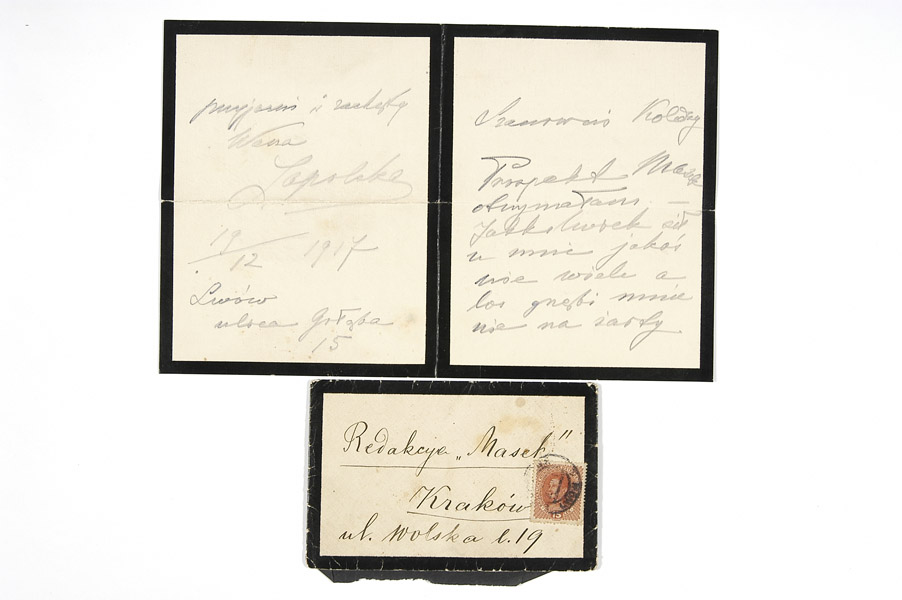 przyjaźń i zachętę
Wasza
Zapolska
19/12 1917
Lwów
ulica Gołąba
15
Szanowni Koledzy
Prospekt Masek
otrzymałam –
Jakkolwiek sił
u mnie jakoś
nie wiele a
los gnębi mnie
nie na żarty
Redakcja „Masek"
Kraków
ul. Wolska l. 19